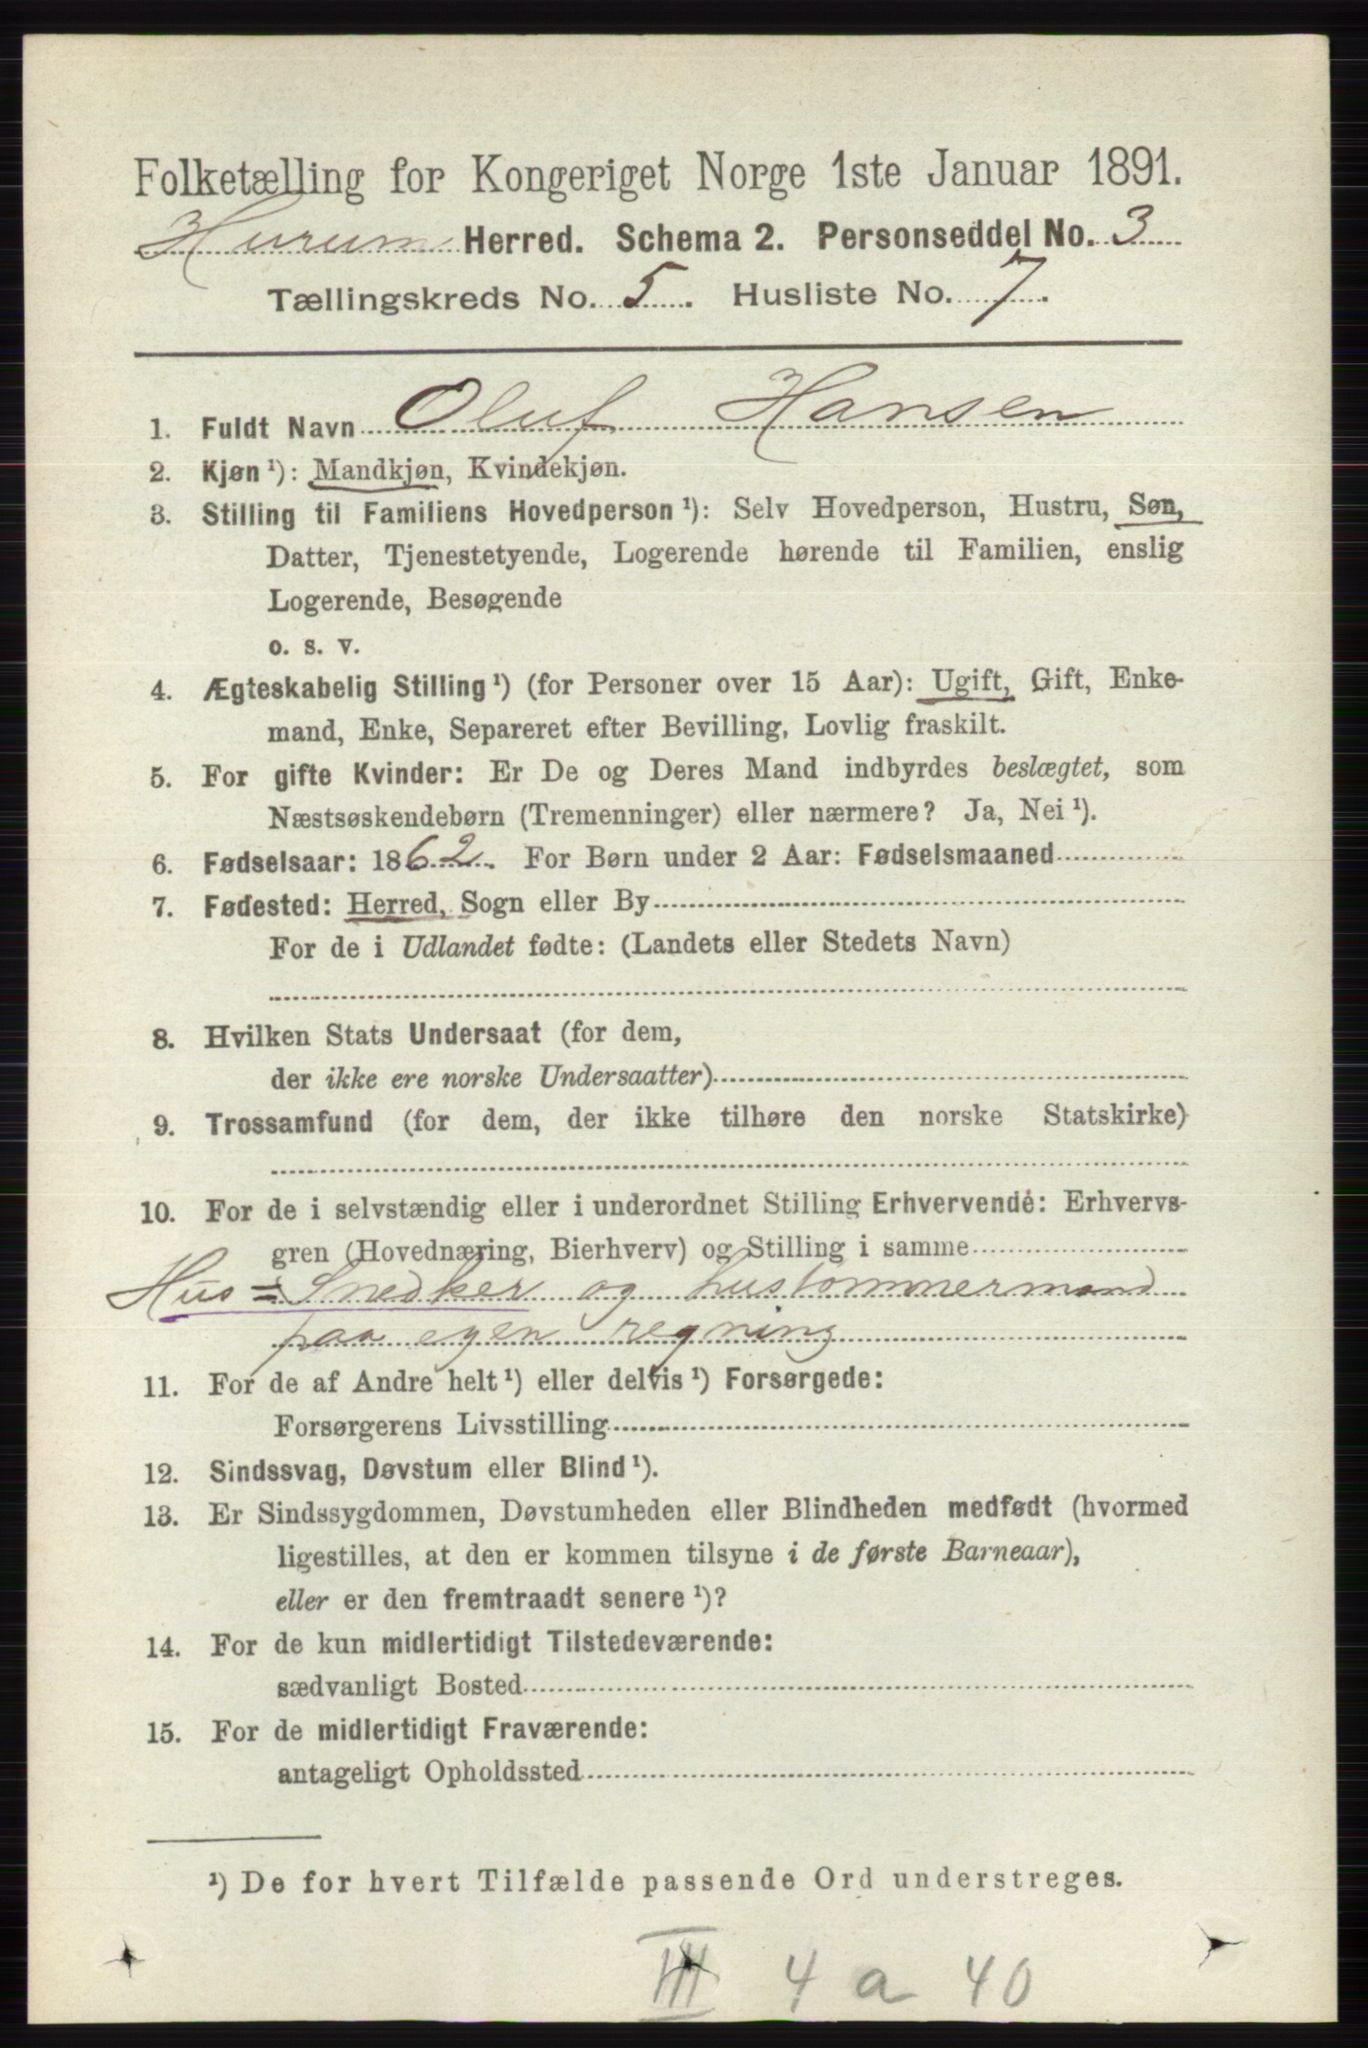 Folketælling for Kongeriget Norge 1ste Januar 1891.
Hurum Herred. Schema 2. Personseddel No. 3
Tællingskreds No. 5. Husliste No. 7.
1. Fuldt Navn Oluf Hansen
2. Kjøn ¹): Mandkjøn, Kvindekjøn.
3. Stilling til Familiens Hovedperson ¹): Selv Hovedperson, Hustru, Søn,
Datter, Tjenestetyende, Logerende hørende til Familien, enslig
Logerende, Besøgende
o. s. v.
4. Ægteskabelig Stilling ¹) (for Personer over 15 Aar): Ugift, Gift, Enke-
mand, Enke, Separeret efter Bevilling, Lovlig fraskilt.
5. For gifte Kvinder: Er De og Deres Mand indbyrdes beslægtet, som
Næstsøskendebørn (Tremenninger) eller nærmere? Ja, Nei ¹).
6. Fødselsaar: 1862. For Børn under 2 Aar: Fødselsmaaned
7. Fødested: Herred, Sogn eller By
For de i Udlandet fødte: (Landets eller Stedets Navn)
8. Hvilken Stats Undersaat (for dem,
der ikke ere norske Undersaatter)
9. Trossamfund (for dem, der ikke tilhøre den norske Statskirke)
10. For de i selvstændig eller i underordnet Stilling Erhvervende: Erhvervs-
gren (Hovednæring, Bierhverv) og Stilling i samme
Hus = Snedker og hustømmermand
paa egen regning
11. For de af Andre helt ¹) eller delvis ¹) Forsørgede:
Forsørgerens Livsstilling
12. Sindssvag, Døvstum eller Blind ¹).
13. Er Sindssygdommen, Døvstumheden eller Blindheden medfødt (hvormed
ligestilles, at den er kommen tilsyne i de første Barneaar),
eller er den fremtraadt senere ¹)?
14. For de kun midlertidigt Tilstedeværende:
sædvanligt Bosted
15. For de midlertidigt Fraværende:
antageligt Opholdssted
¹) De for hvert Tilfælde passende Ord understreges.
III 4 a 40